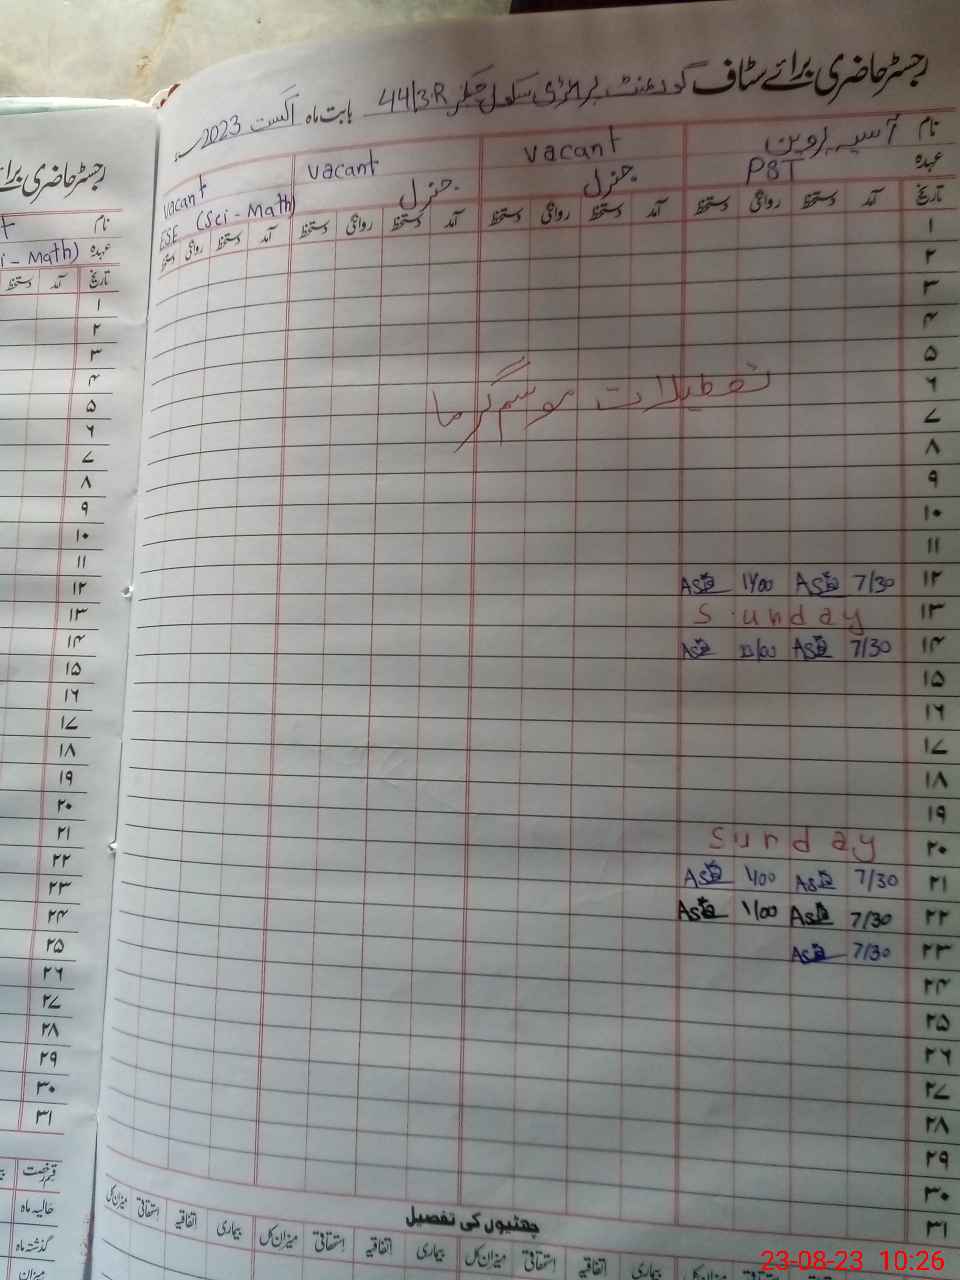 رجسٹر حاضری برائے سٹاف گورنمنٹ پرائمری سکول چک 44/3R بابت ماہ اگست 2023ء
نام آسیہ پروین vacant vacant vacant
عہدہ PST جنرل جنرل ESE (Sci-Math)
تاریخ آمد دستخط روانگی دستخط آمد دستخط روانگی دستخط آمد دستخط روانگی دستخط آمد دستخط روانگی دستخط
۱
۲
۳
۴
۵
۶ تعطیلات موسم گرما
۷
۸
۹
۱۰
۱۱
۱۲ 7/30
۱۳ Sunday
۱۴ 7/30
۱۵
۱۶
۱۷
۱۸
۱۹
۲۰ Sunday
۲۱ 7/30 1/00
۲۲ 7/30 1/00
۲۳ 7/30
۲۴
۲۵
۲۶
۲۷
۲۸
۲۹
۳۰
۳۱
چھٹیوں کی تفصیل
بیماری اتفاقیہ استحقاقی میزان کل بیماری اتفاقیہ استحقاقی میزان کل بیماری اتفاقیہ استحقاقی میزان کل
رجسٹر حاضری برائے
نام t
عہدہ i-Math)
تاریخ آمد دستخط
۱
۲
۳
۴
۵
۶
۷
۸
۹
۱۰
۱۱
۱۲
۱۳
۱۴
۱۵
۱۶
۱۷
۱۸
۱۹
۲۰
۲۱
۲۲
۲۳
۲۴
۲۵
۲۶
۲۷
۲۸
۲۹
۳۰
۳۱
قسم رخصت
حالیہ ماہ
گذشتہ ماہ
میزان
23-08-23 10:26